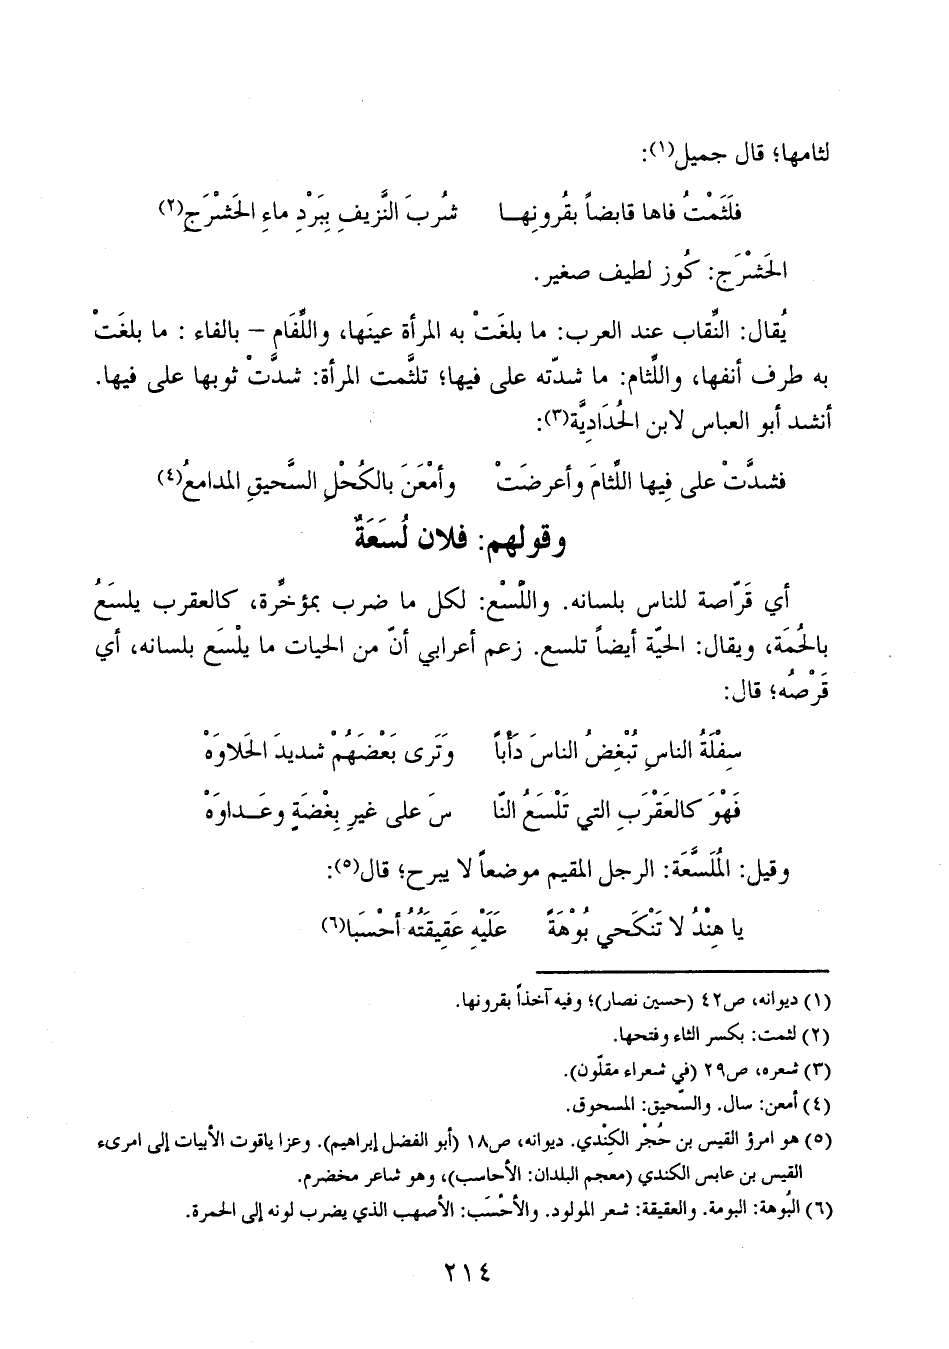 لثامها؛ قال جميل(١):
فَلَثَمْتُ فاها قابضاً بقُرونِهـا شُربَ النَّزيفِ بِبَرْدِ ماءِ الحَشْرَجِ(٢)
الحَشْرَج: كُوز لطيف صغير.
يُقال: النِّقاب عند العرب: ما بلغَتْ به المرأة عينَها، واللِّفَام – بالفاء : ما بلغَتْ
به طرف أنفها، واللِّثام: ما شدّته على فيها؛ تلثَّمت المرأة: شدَّتْ ثوبها على فيها.
أنشد أبو العباس لابن الحُدَاديَّة(٣):
فشدَّتْ على فِيها اللِّثامَ وأعرضَتْ وأمْعَنَ بالكُحْلِ السَّحيقِ المدامعُ(٤)
وقولهم: فلان لُسَعَةٌ
أي قَرّاصة للناس بلسانه. واللَّسْع: لكل ما ضرب بمؤخَّرة، كالعقرب يلسَعُ
بالحُمَة، ويقال: الحيّة أيضاً تلسع. زعم أعرابي أنّ من الحيات ما يلْسَع بلسانه، أي
قَرْصُه؛ قال:
سِفْلَةُ الناسِ تُبْغِضُ الناسَ دَأْباً وَتَرى بَعْضَهُمْ شديدَ الحَلاوَهْ
فَهْوَ كالعَقْرَبِ التي تَلْسَعُ النّا سَ على غيرِ بِغْضَةٍ وعَـداوَهْ
وقيل: المُلَسَّعَة: الرجل المقيم موضعاً لا يبرح؛ قال(٥):
يا هِنْدُ لا تَنْكَحي بُوْهَةً عَلَيْهِ عَقِيقَتُهُ أحْسَبَا(٦)
(١) ديوانه، ص٤٢ (حسين نصار)؛ وفيه آخذاً بقرونها.
(٢) لثمت: بكسر الثاء وفتحها.
(٣) شعره، ص٢٩ (في شعراء مقلّون).
(٤) أمعن: سال. والسّحيق: المسحوق.
(٥) هو امرؤ القيس بن حُجْر الكِنْدي. ديوانه، ص١٨ (أبو الفضل إبراهيم). وعزا ياقوت الأبيات إلى امرىء
القيس بن عابس الكندي (معجم البلدان: الأحاسب)، وهو شاعر مخضرم.
(٦) البُوهة: البومة. والعقيقة: شعر المولود. والأحْسَب: الأصهب الذي يضرب لونه إلى الحمرة.
٢١٤